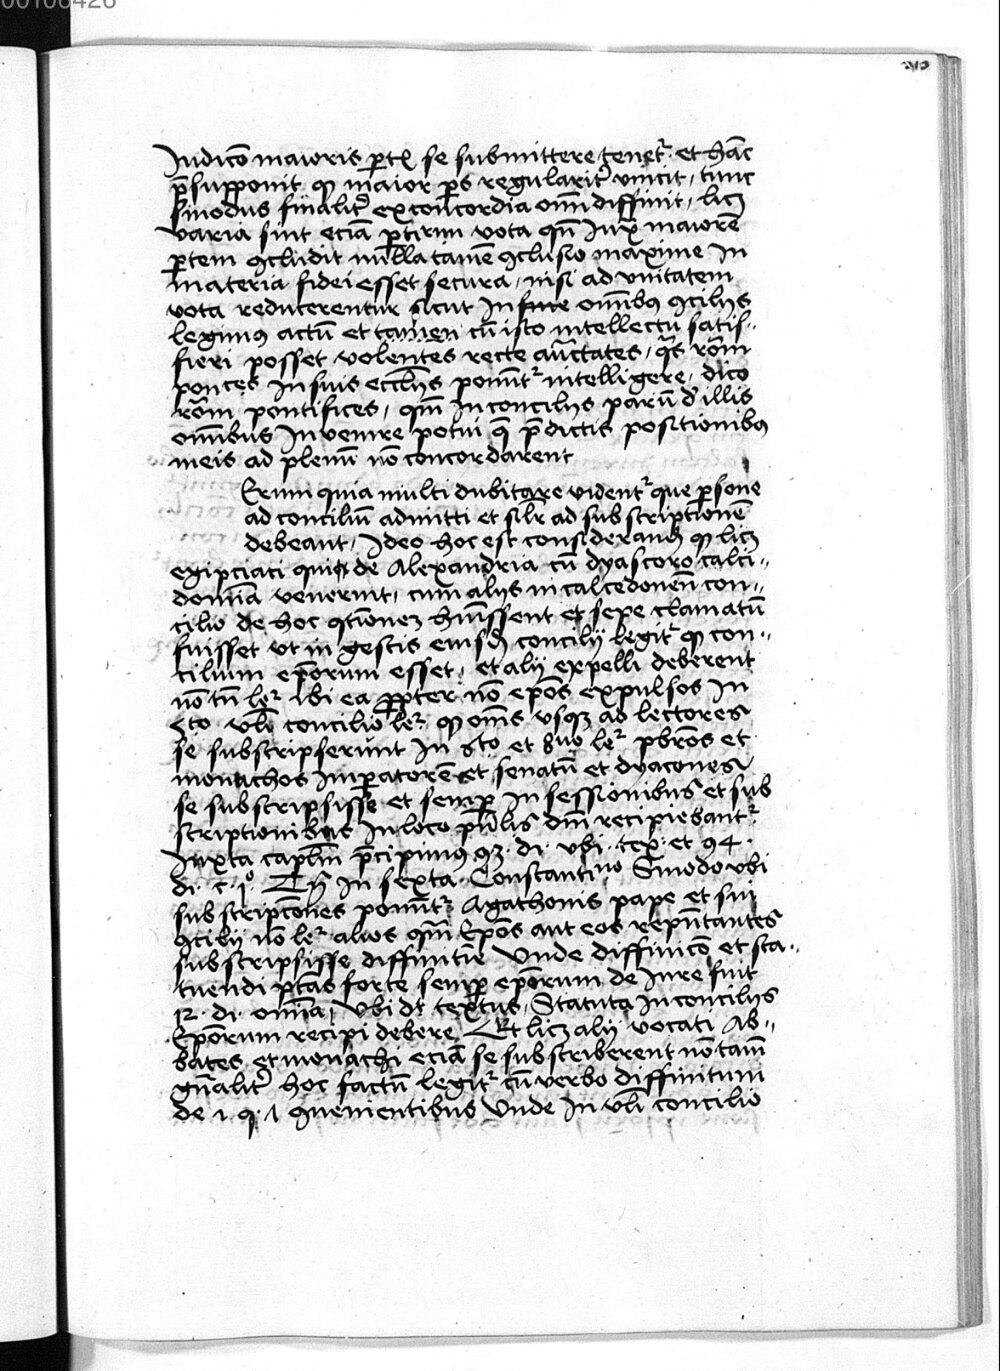 00106426
Iudico͞ maioris ꝑt̄ se submittere tenet᷑ et hac̄
p̄supponit qꝫ maior ps̄ regularit᷑ vincit, tunc
sinodus finalit᷑ ex concordia om̄i diffinit, licꝫ
varia sint eciā ꝑtirm vota qn̄ iux̄ maiorē
ꝑtem ꝯcludit nulla tamē ꝯclusio maxime in
materia fidei esset secura, nisi ad vnitatem
vota reducerentur sicut in om̄ibus ꝯcilijs
legimus actū et tamen cū isto intellectu satis-
fieri posset volentes recte auc̄tates, qs̄ rom̄
ponces in suis ecclijs ponūt᷑ intelligere, dico
rom̄ pontifices, qm̄ in concilijs parū d' illis
om̄ibus in venire potui q̄ p̄dictis positionibꝯ
meis ad plenū nō concordarent
Erum quia multi dubitare vident᷑ que ꝑsone
ad conciliū admitti et silr̄ ad subscriptionē
debeant, Ideo hoc est considerand' qꝫ licꝫ
egipciaci qui de Alexandria cū dyascoro calci-
doniā venerunt, cum alijs in calcedonen̄ con-
cilio de hoc ꝯtionez hūissent et sepe clamatū
fuisset vt in gestis eiusd' concilij legit᷑ qꝫ con-
cilium ep̄orum esset, et alij expelli deberent
nō tn̄ le᷑ ibi ea ꝓpter nō ep̄os expulsos In
8to vl̄i concilio le᷑ qꝫ om̄s vsqꝫ ad lectores
se subscripserunt In 6to et 8uo le᷑ pbr̄os et
monachos imꝑatorē et senatū et dyacones
se subscripsisse et semꝑ in sessionibus et sub
scriptionibus in loco pn̄lis dm̄ recipiebant᷑
Iuxta caplm̄ p̄cipimus 93 di vbi tex et 94
di c 1o In sexta Constantino Sinodo vbi
subscripcōnes ponūt᷑ Agathonis pape et sui
ꝯcilij nō le᷑ alios qm̄ Ep̄os aut eos rep̄ntantes
subscripsisse diffinitiē Vnde diffinicō et sta-
tuendi ptas̄ forte semꝑ ep̄orum de iure fuit
12 di om̄ia, vbi dt textus, Statuta in concilijs
Ep̄orum recipi debere Et licꝫ alij vocati Ab-
bates et monachi eciā se subscriberent nō tam̄
gn̄alit᷑ hoc factū legit᷑ cū verbo diffinitum
de 1 q 1 quenientibus Vnde in vl̄i concilio